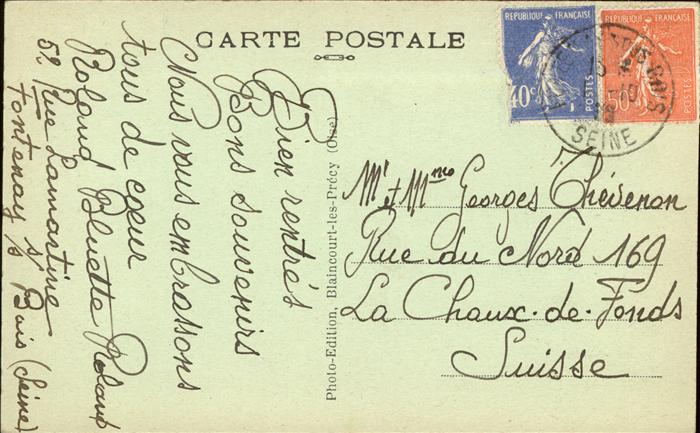 CARTE POSTALE
RÉPUBLIQUE FRANÇAISE
40c
POSTES
RÉPUBLIQUE FRANÇAISE
50c
POSTES
SEINE
Bien rentrés
Bons souvenirs
Nous vous embrassons
tous de cœur
Roland Bluette Roland
52 Rue Lamartine
Fontenay s/ Bois (Seine)
Photo-Edition, Blaincourt-les-Précy (Oise)
Mr et Mme Georges Thévenon
Rue du Nord 169
La Chaux-de-Fonds
Suisse